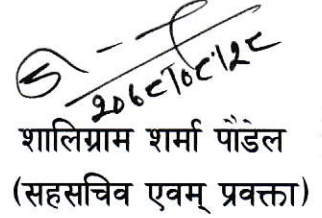 २०७८।०८।२८
शालिग्राम शर्मा पौडेल
(सहसचिव एवम् प्रवक्ता)